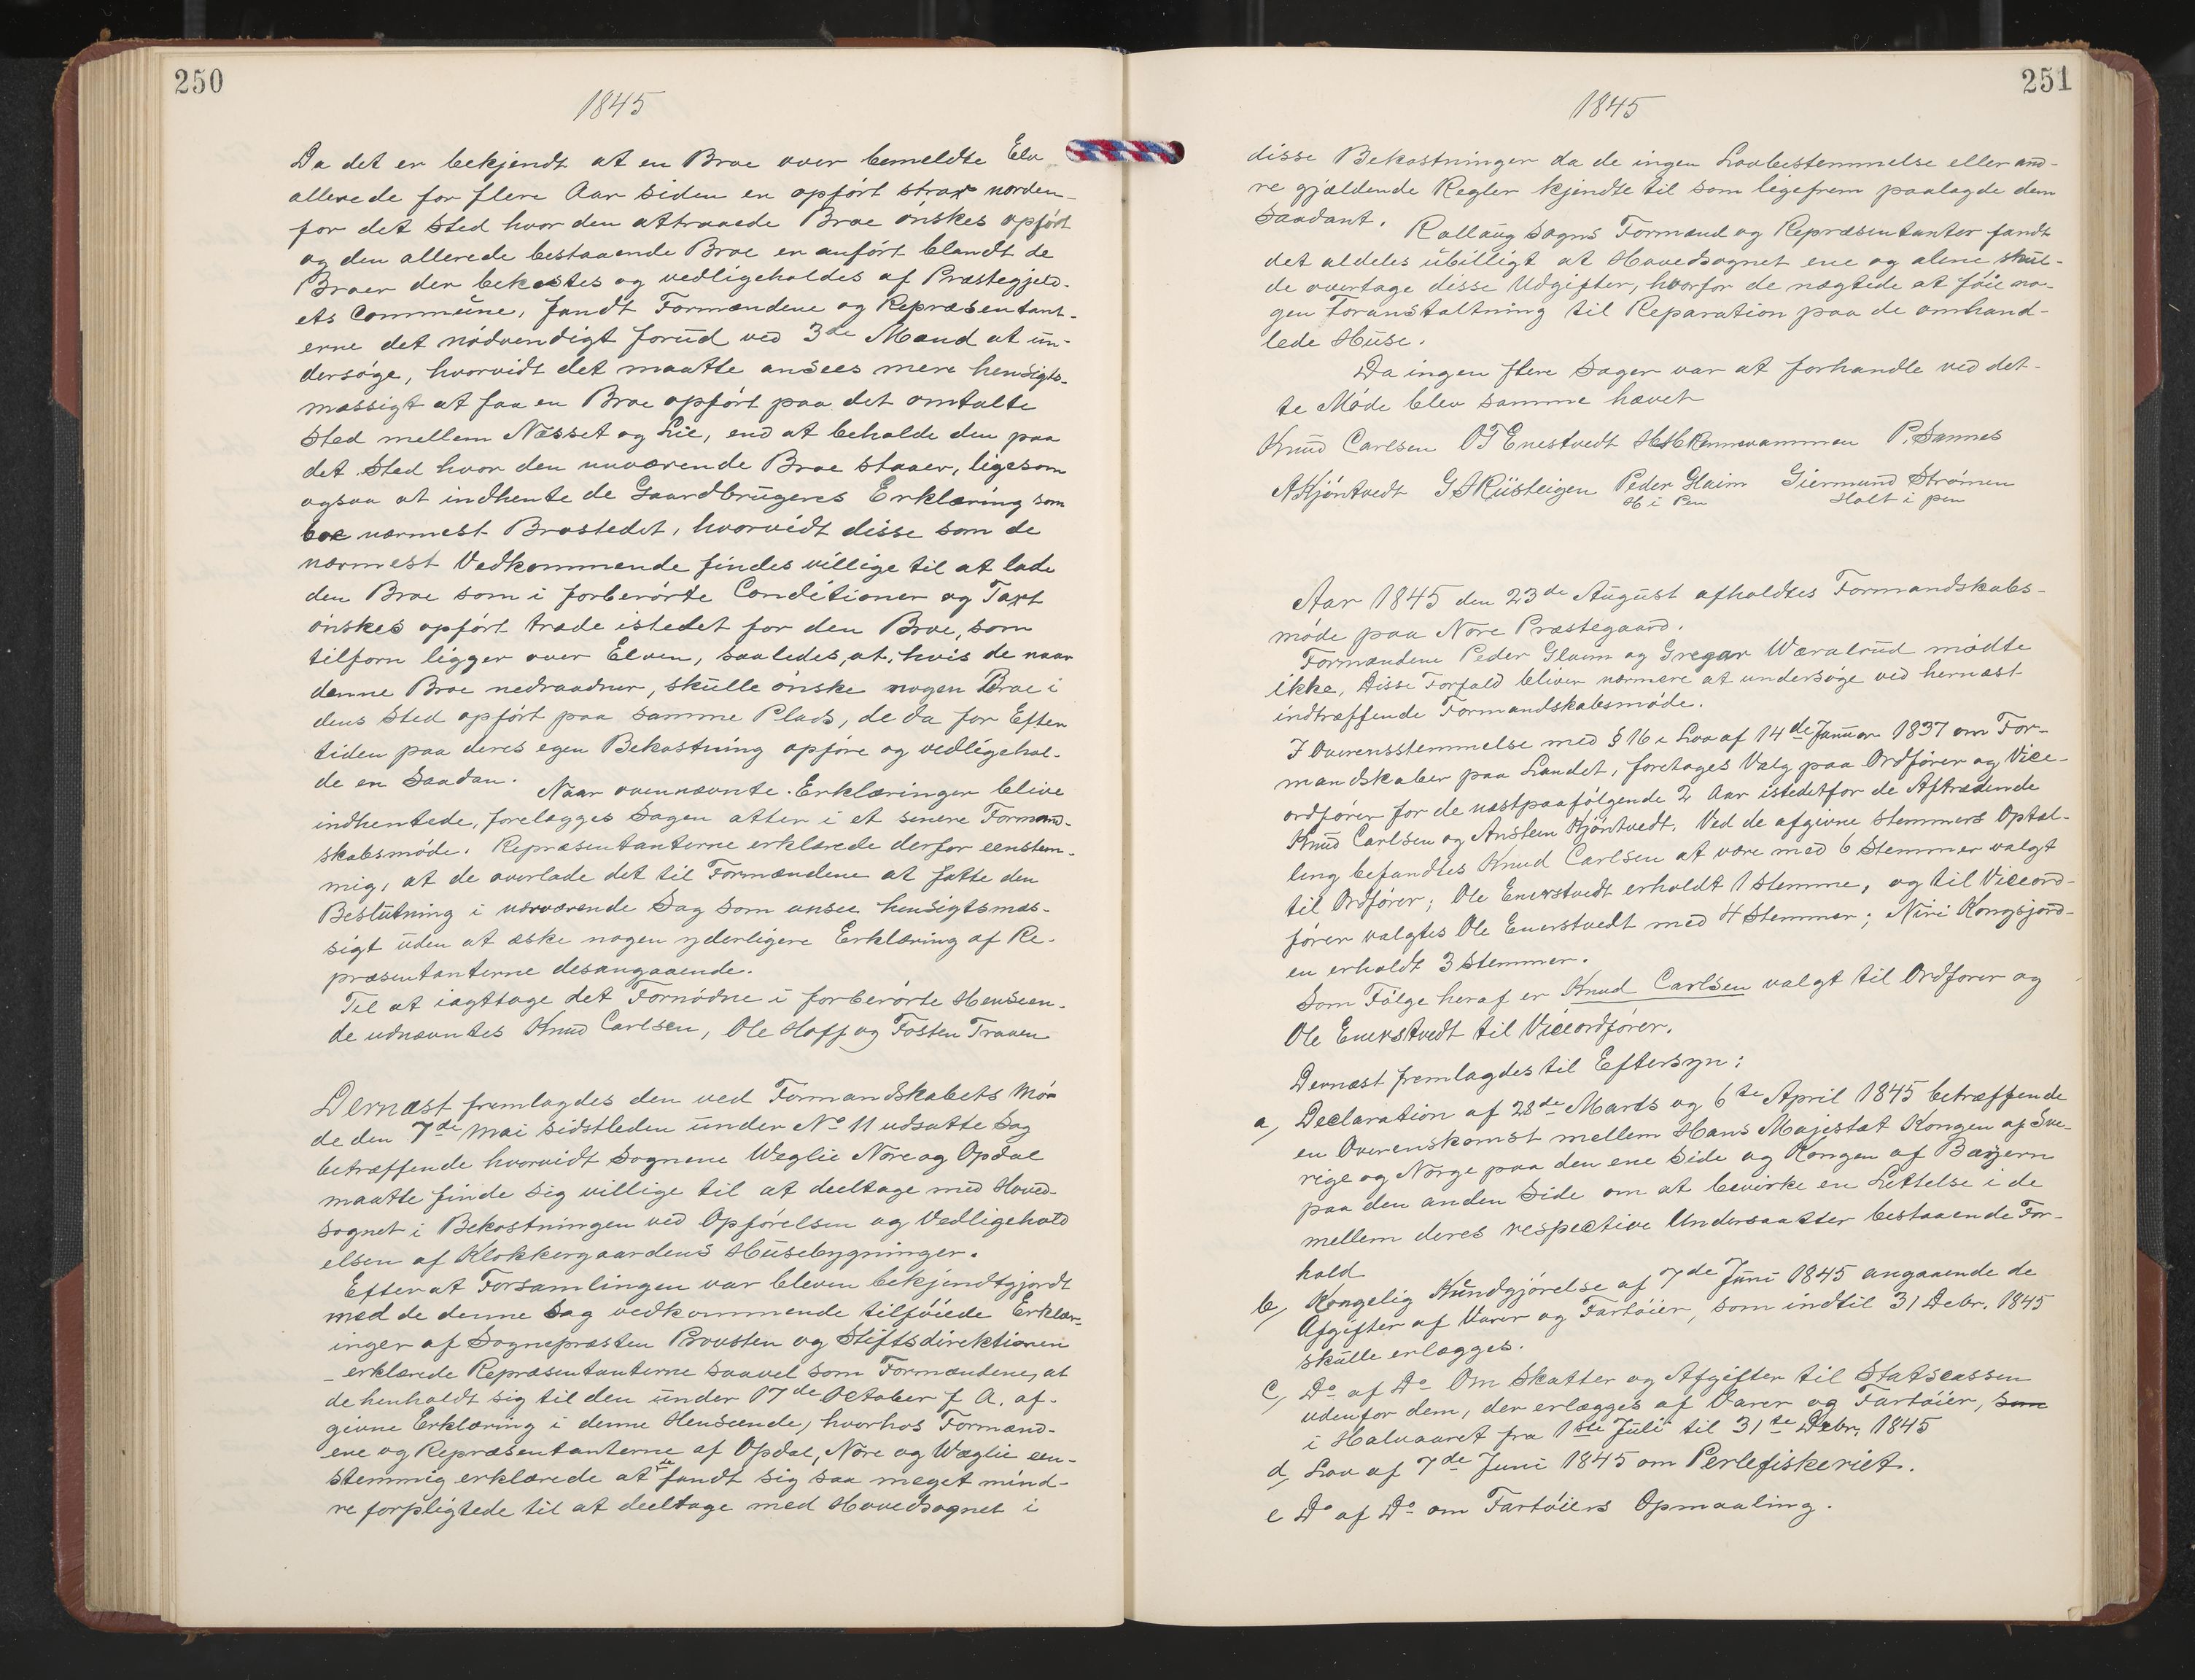 250
1845
Da det er bekjendt at en Broe over bemeldte Elv
allerede for flere Aar siden er opført strax norden-
for det Sted hvor den attraaede Broe ønskes opført
og den allerede bestaaende Broe er anført blandt de
Broer der bekostes og vedligeholdes af Præstegjeld-
ets Commune, fandt Formændene og Repræsentant-
erne det nødvendigt forud ved 3de Mænd at un-
dersøge, hvorvidt det maatte ansees mere hensigts-
mæssigt at faa en Broe opført paa det omtalte
Sted mellem Næsset og Lie, end at beholde den paa
det Sted hvor den nuværende Broe staaer, ligesom
ogsaa at indhente de Gaardbrugeres Erklæring som
boe nærmest Brostedet, hvorvidt disse som de
nærmest Vedkommende findes villige til at lade
den Broe som i forberørte Conditioner og Taxt
ønskes opført træde istedet for den Broe, som
tilforn ligger over Elven, saaledes, at, hvis de naar
denne Broe nedraadner, skulle ønske nogen Broe i
dens Sted opført paa samme Plads, de da for Efter
tiden paa deres egen Bekostning opføre og vedligehol-
de en Saadan. Naar ovennævnte Erklæringer blive
indhentede, forelægges Sagen atter i et senere Formand-
skabsmøde. Repræsentanterne erklærede derfor eenstem-
mig, at de overlade det til Formændene at fatte den
Beslutning i nærværende Sag som ansees hensigtsmæs-
sigt uden at æske nogen yderligere Erklæring af Re-
præsentanterne desangaaende.
Til at iagttage det Fornødne i forberørte Henseen-
de udnævntes Knud Carlsen, Ole Hoff og Tosten Traaen
Dernæst fremlagdes den ved Formandskabets Mø-
de den 7de Mai sidstleden under No 11 udsatte Sag
betræffende hvorvidt Sognene Weglie Nore og Opdal
maatte finde sig villige til at deeltage med Hoved-
sognet i Bekostningen ved Opførelsen og Vedligehold
elsen af Klokkergaardens Husebygninger.
Efter at Forsamlingen var bleven bekjendtgjordt
med de denne Sag vedkommende tilføiede Erklær-
inger af Sognepræsten Provsten og Stiftsdirektionen
erklærede Repræsentanterne saavel som Formændene, at
de henholdt sig til den under 17de October f. A. af-
givne Erklæring i denne Henseende, hvorhos Formænd-
ene og Repræsentanterne af Opdal, Nore og Wæglie een-
stemmig erklærede at de fandt sig saa meget mind-
re forpligtede til at deeltage med Hovedsognet i
251
1845
disse Bekostninger da de ingen Lovbestemmelse eller and-
re gjældende Regler kjendte til som ligefrem paalagde dem
saadant. Rollaug Sogns Formænd og Repræsentanter fandt
det aldeles ubilligt at Hovedsognet ene og alene skul-
de overtage disse Udgifter, hvorfor de nægtede at føie no-
gen Foranstaltning til Reparation paa de omhand-
lede Huse.
Da ingen flere Sager var at forhandle ved det-
te Møde blev samme hævet
Knud Carlsen OT Enestvedt P. Sannes
AKjøntvedt Peder Glaim Giermund Strømen
H i Pen Holt i pen
Aar 1845 den 23de August afholdtes Formandskabs-
møde paa Nore Præstegaard.
Formændene Peder Glaim og Gregar Wæralrud mødte
ikke, Disse Forfald bliver nærmere at undersøge ved hernæst
indtræffende Formandskabsmøde.
I Overensstemmelse med § 16 i Lov af 14de Januar 1837 om For-
mandskaber paa Landet, foretoges Valg paa Ordfører og Vice-
ordfører for de næstpaafølgende 2 Aar istedetfor de Aftrædende
Knud Carlsen og Anstein Kjøntvedt. Ved de afgivne Stemmers Optæl-
ling befandtes Knud Carlsen at være med 6 Stemmer valgt
til Ordfører; Ole Enerstvedt erholdt 1 Stemme, og til Viceord-
fører valgtes Ole Enerstvedt med 4 Stemmer; Niri Kongsjord-
en erholdt 3 Stemmer.
Som Følge heraf er Knud Carlsen valgt til Ordfører og
Ole Enerstvedt til Viceordfører.
Dernæst fremlagdes til Eftersyn:
a, Declaration af 28de Marts og 6te April 1845 betræffende
en Overenskomst mellem Hans Majestæt Kongen af Sve-
rige og Norge paa den ene Side og Kongen af Bayern
paa den anden Side om at bevirke en Lettelse i de
mellem deres respective Undersaatter bestaaende For-
hold
b, Kongelig Kundgjørelse af 7de Juni 1845 angaaende de
Afgifter af Varer og Fartøier, som indtil 31 Debr. 1845
skulle erlægges.
c, Do af Do Om Skatter og Afgifter til Statscassen
udenfor dem, der erlægges af Varer og Fartøier, som
i Halvaaret fra 1ste Juli til 31te Debr. 1845
d, Lov af 7de Juni 1845 om Perlefiskeriet.
e Do af Do om Fartøiers Opmaaling.